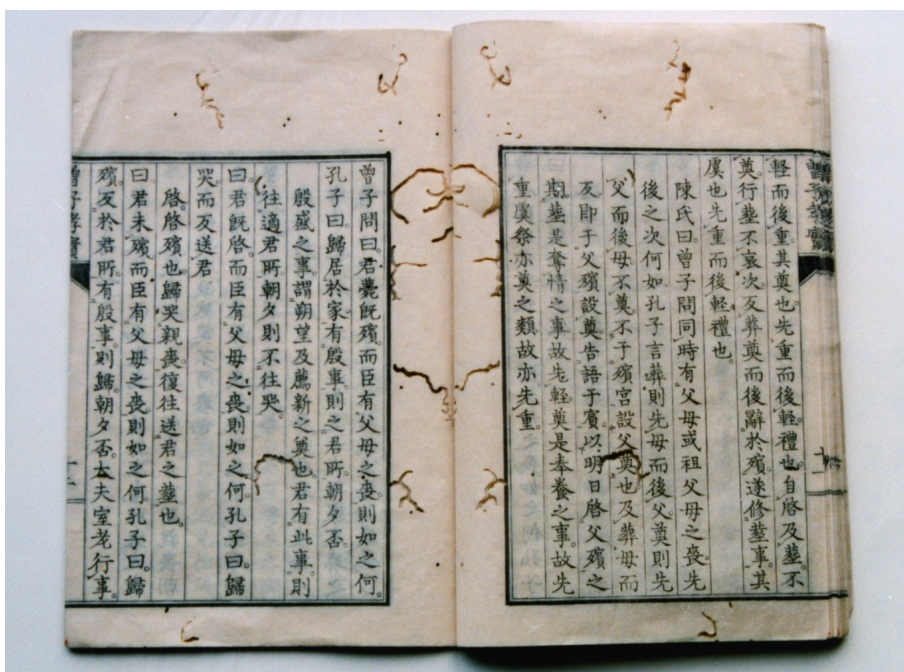 軽而後重。其奠也。先重而後軽。禮也。自啓及塟。不
奠。行塟不哀次。反葬奠。而後辭於殯。遂修塟事。其
虞也。先重而後軽。禮也。
陳氏曰。曾子問同時有父母或祖父母之喪。先
後之次何如。孔子言葬則先母而後父。奠則先
父而後母。不奠。不于殯宮設父奠也。及葬母而
反。即于父殯設奠。告語于賓。以明日啓父殯之
期。塟是奪情之事。故先軽。奠是奉養之事。故先
重。虞祭亦奠之類。故亦先重。
曾子問曰。君薨既殯。而臣有父母之喪。則如之何。
孔子曰。歸居於家。有殷事則之君所。朝夕否。
殷盛之事。謂朔望及薦新之奠也。君有此事。則
往適君所。朝夕則不往哭。
曰。君既啓。而臣有父母之喪。則如之何。孔子曰。歸
哭而反送君。
啓。啓殯也。歸哭親喪。復往送君之塟也。
曰。君未殯。而臣有父母之喪。則如之何。孔子曰。歸
殯。反於君所。有殷事。則歸。朝夕否。大夫室老行事。